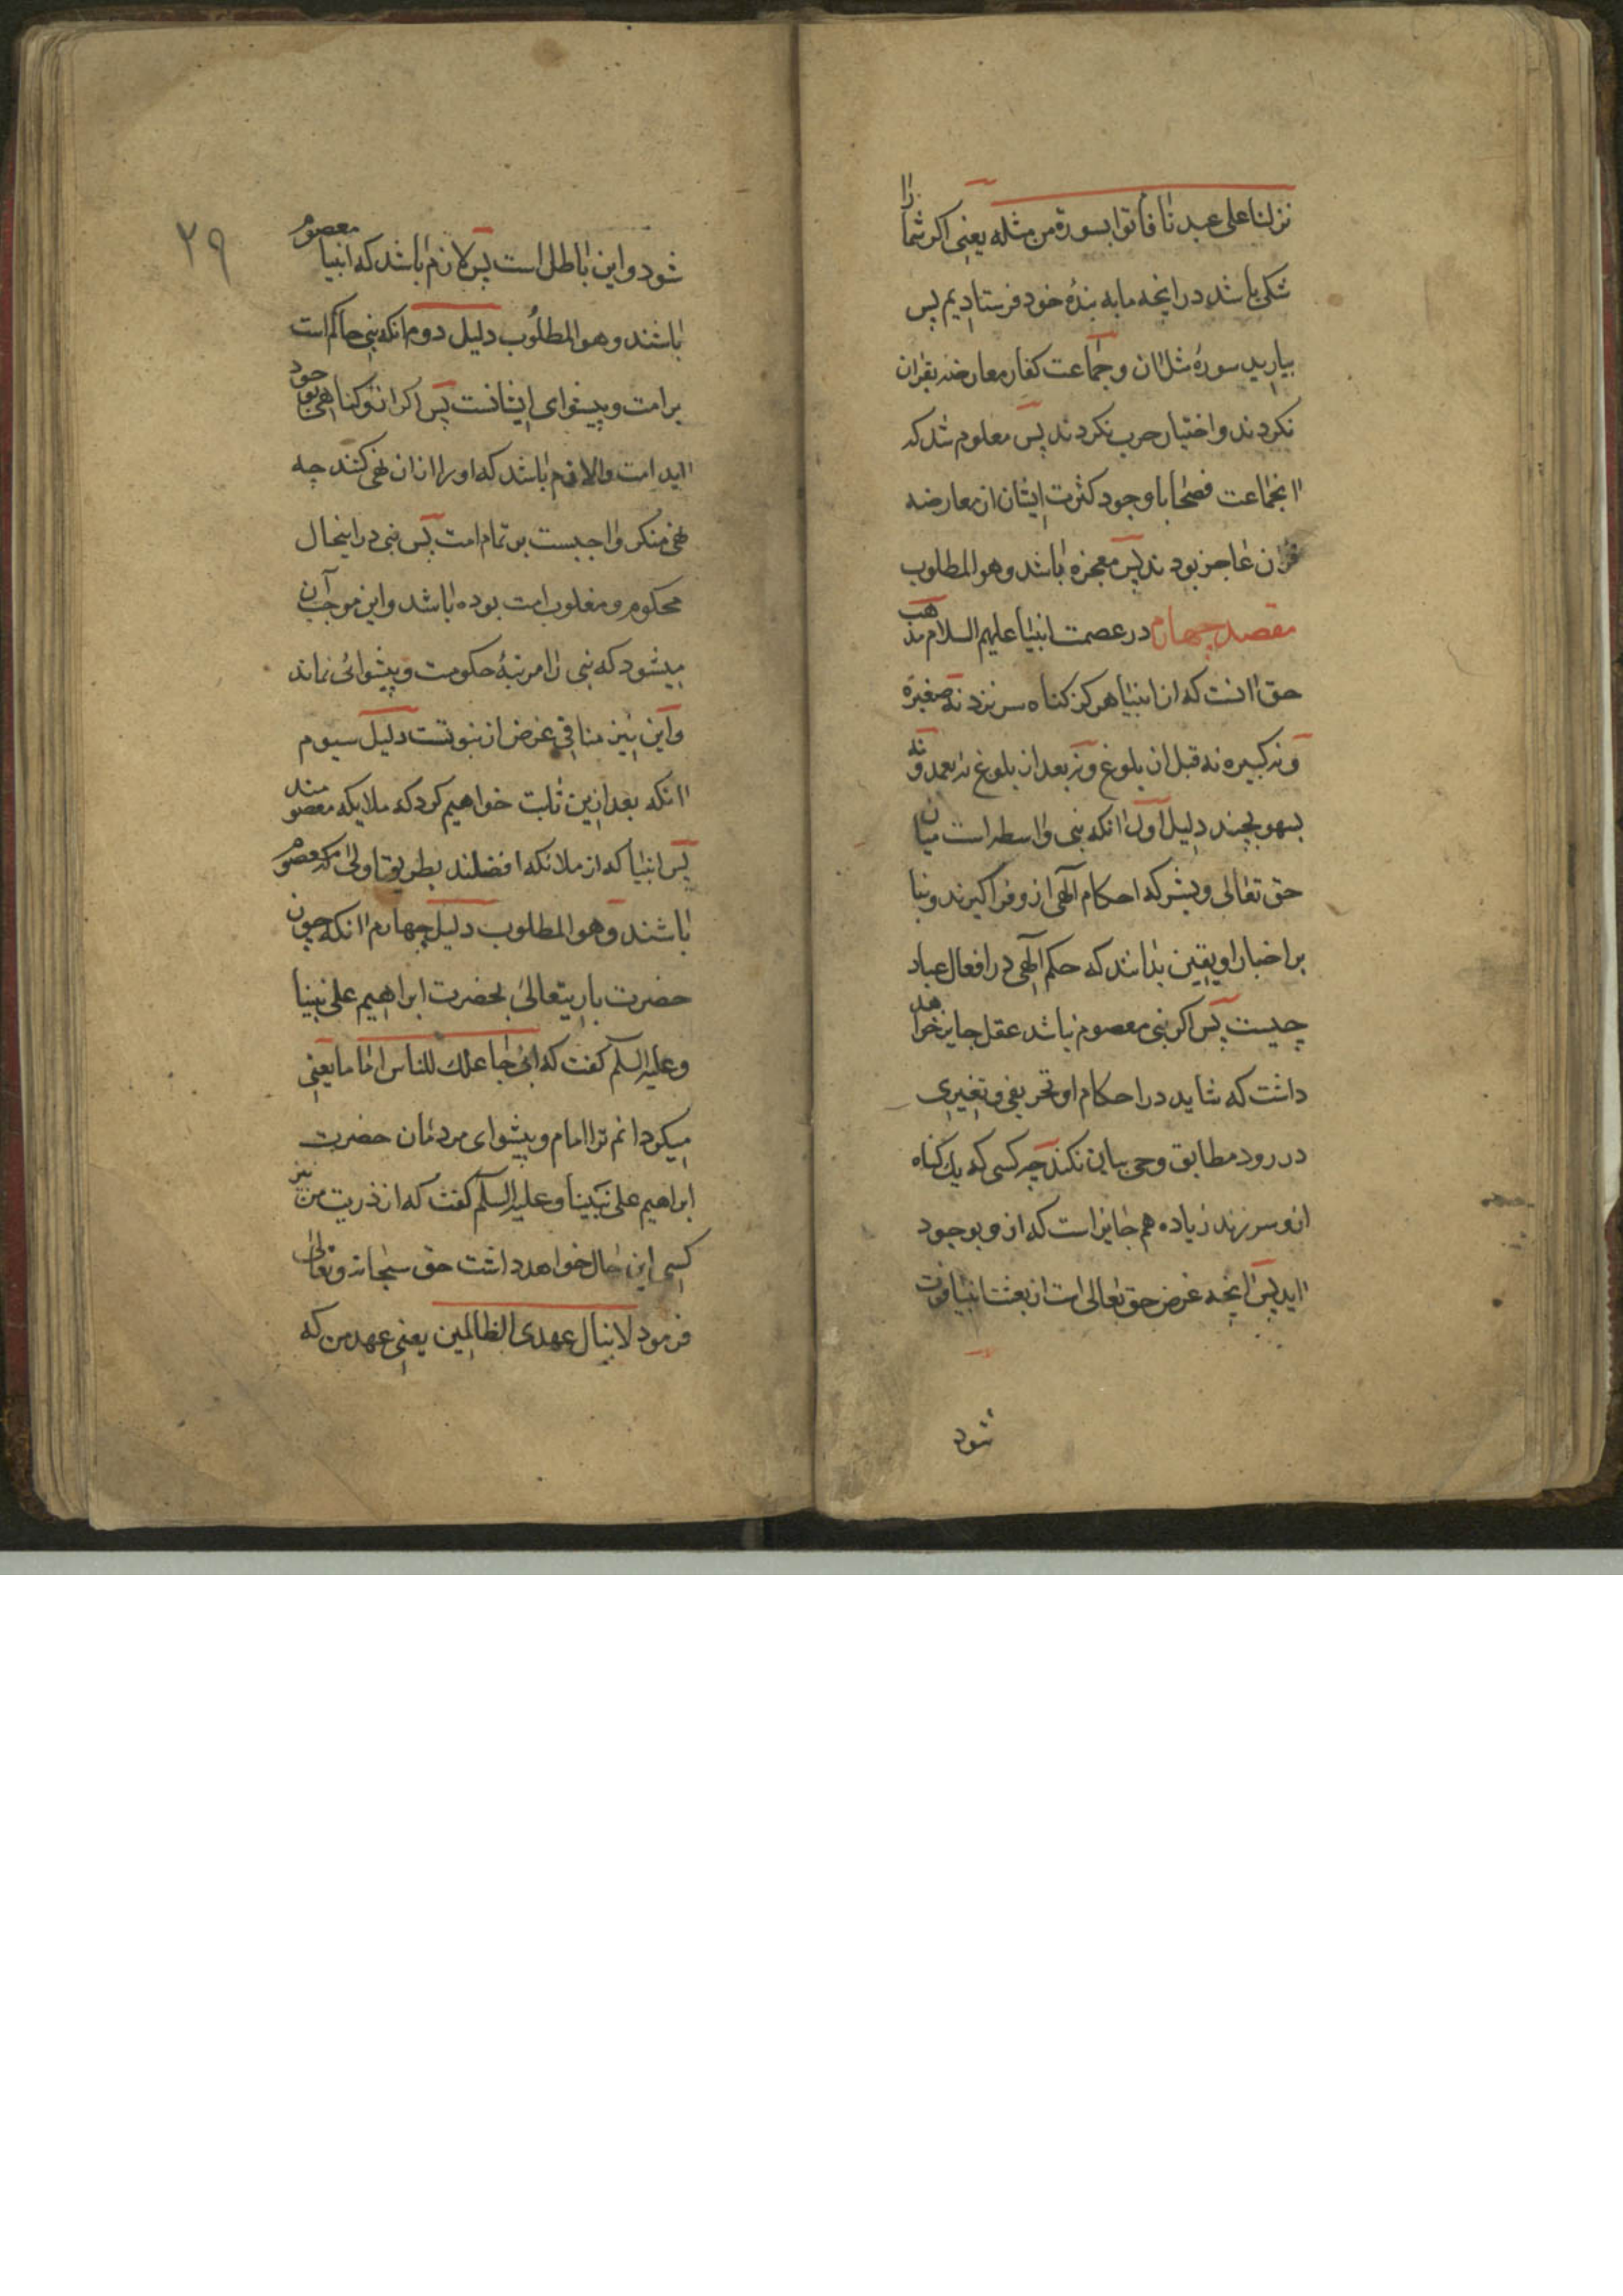 نزلنا علی عبدنا فأتوا بسورة من مثله یعنی اکر شما را
شکی باشد در انچه ما به بندۀ خود فرستادیم پس
بیارید سورۀ مثل ان و جماعت کفار معارضه بقران
نکردند و اختیار حرب نکردند پس معلوم شد که
اانجماعت فصحا با وجود کثرت ایشان از معارضه
قران عاجز بودند پس معجزه باشد و هو المطلوب
مقصد چهارم در عصمت انبیا علیهم السلام مذهب
حق اانست که از انبیا هرکز کناه سر نزد نه صغیره
و نه کبیره نه قبل از بلوغ و نه بعد از بلوغ نه بعمد و نه
بسهو بچند دلیل اول اانکه نبی واسطه است میان
حق تعالی و بشر که احکام آلهی ازو فرا کیرند و بنا
بر اخبار او یقین بدانند که حکم آلهی در افعال عباد
چیست پس اکر نبی معصوم نباشد عقل جایز خواهد
داشت که شاید در احکام او تحریفی و تغییری
در رود مطابق وحی بیان نکند چه کسی که یک کناه
ازو سر زند زیاده هم جایز است که ازو بوجود
ااید پس اانچه غرض حق تعالی است از بعثت انبیا فوت
شود
٢٩
شود و این باطل است پس لازم باشد که انبیا معصوم
باشند و هو المطلوب دلیل دوم انکه نبی حاکم است
بر امت و پیشوای ایشانست پس اکر ازو کناهی بوجود
ااید امت را لازم باشد که او را از ان نهی کنند چه
نهی منکر واجبست بر تمام امت پس نبی در اینحال
محکوم و مغلوب امت بوده باشد و این موجب آن
میشود که نبی را مرتبۀ حکومت و پیشوائی نماند
و این نیز منافی غرض از نبوتست دلیل سیوم
اانکه بعد ازین ثابت خواهیم کرد که ملایکه معصومند
پس انبیا که از ملائکه افضلند بطریق اولی که معصوم
باشند و هو المطلوب دلیل چهارم اانکه چون
حضرت باریتعالی بحضرت ابراهیم علی نبینا
و علیه السلم کفت که انی جاعلک للناس اماما یعنی
میکردانم ترا امام و پیشوای مردمان حضرت
ابراهیم علی نبینا و علیه السلم کفت که از ذریت من نیز
کسی این حال خواهد داشت حق سبحانه و تعالی
فرمود لا ینال عهدی الظالمین یعنی عهد من که